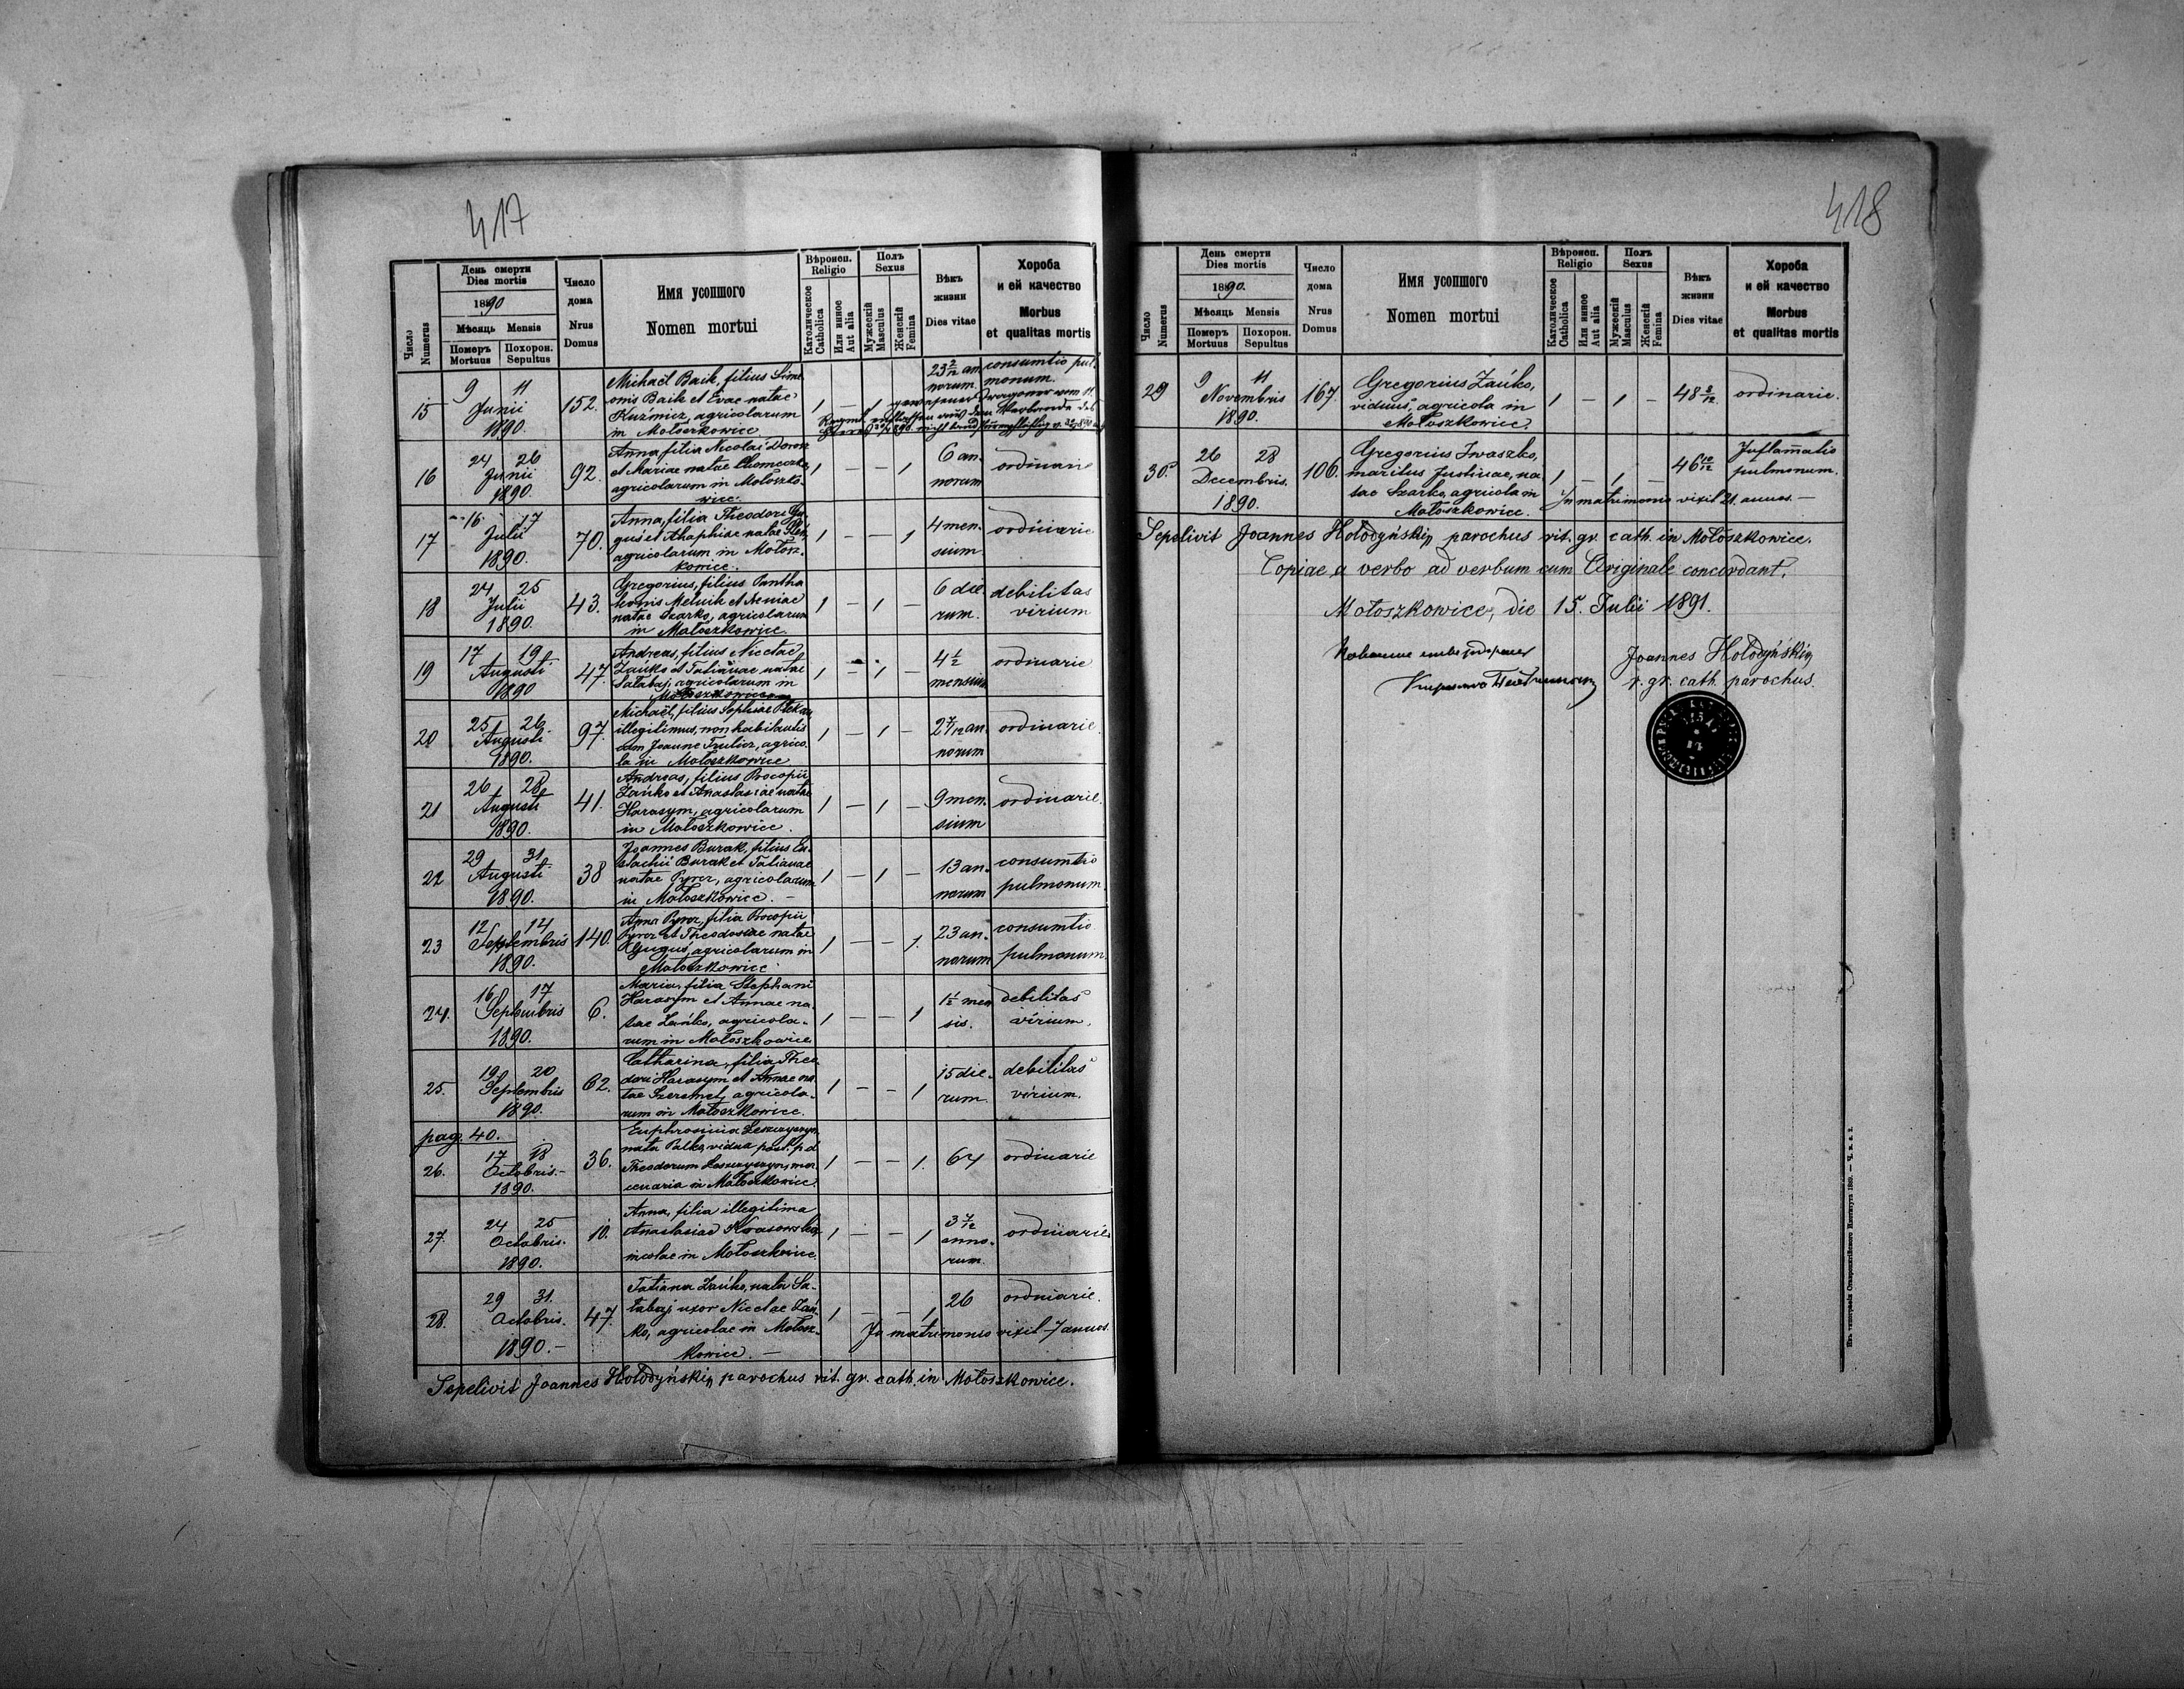 417
Число
Numerus
День смерти
Dies mortis
1890
Мѣсяць Mensis
Померъ Похорон.
Mortuus Sepultus
Число
дома
Nrus
Domus
Имя усопшого
Nomen mortui
Вѣроисп.
Religio
Католическое
Catholica
Или иное
Aut alia
Полъ
Sexus
Мужескій
Masculus
Женскій
Femina
Вѣкъ
жизни
Dies vitae
Хороба
и ей качество
Morbus
et qualitas mortis
15
9 11
Junii
1890.
152.
Michaël Baik, filius Sime
onis Baik et Evae natae
Kuźmicz, agricolarum
in Mołoszkowice
1 – 1
23 2/12 an
norum.
consumtio pul
monum.
16
24 26
Junii
1890.
92.
Anna, filia Nicolai
et Mariae natae
agricolarum in Mołoszko-
wice.
1 – – 1
6 an
norum
ordinarie
17
16 17
Julii
1890.
70.
Anna, filia Theodori Gu-
guś et Ahaphiae natae
agricolarum in Mołosz-
kowice.
1 – – 1
4 men
sium
ordinarie
18
24 25
Julii
1890.
43.
Gregorius, filius Pantha
leonis Melnik et
natae Szarko, agricolarum
in Mołoszkowice.
1 – 1 –
6 die-
rum.
debilitas
virium
19
17 19
Augusti
1890
47.
Andreas, filius Nicetae
Zańko et Tatianae natae
Sałabaj, agricolarum in
Mołoszkowice
1 – 1 –
4 1/2
mensium
ordinarie
20
25 26
Augusti
1890.
97.
Michaël, filius Sophiae
illegitimus, non habitantis
cum Joanne agrico
la in Mołoszkowice
1 – 1 –
2 7/12 an
norum
ordinarie
21
26 28
Augusti
1890.
41.
Andreas, filius Procopii
Zańko et Anastasiae natae
Harasym, agricolarum
in Mołoszkowice.
1 – 1 –
9 men-
sium
ordinarie.
22
29 31
Augusti
1890.
38
Joannes Burak, filius Eu-
stachii Burak et Tatianae
natae Pyroz, agricolarum
in Mołoszkowice. –
1 – 1 –
13 an-
norum
consumtio
pulmonum.
23
12 14
Septembris
1890.
140.
Anna Pyroz, filia Procopii
Pyroz et Theodosiae natae
Guguś, agricolarum in
Mołoszkowice
1 – – 1.
23 an-
norum
consumtio
pulmonum
24.
16 17
Septembris
1890.
6.
Maria, filia Stephani
Harasym et Annae na
tae Zańko, agricola-
rum in Mołoszkowice
1 – – 1
1 1/2 men
sis.
debilitas
virium.
25.
19 20
Septembris
1890.
62.
Catharina, filia Theo
dori Harasym et Annae na
tae Szeremet, agricola-
rum in Mołoszkowice.
1 – – 1
15 die-
rum.
debilitas
virium.
pag. 40.
26.
17 18
Octobris. –
1890.
36.
Euphrosinia Leszczyszyn,
nata Palko, vidua post. p. d.
Theodorum Leszczyszyn, mer
cenaria in Mołoszkowice.
1 – – 1.
64
ordinarie
27.
24 25
Octobris.
1890.
10.
Anna, filia illegitima
Anastasiae
incolae in Mołoszkowice.
1 – – 1
3 7/12
anno-
rum.
ordinarie
28.
29 31.
Octobris.
1890. –
47.
Tatiana Zańko, nata Sa-
łabaj, uxor Nicetae Zań-
ko, agricolae in Mołosz-
kowice. –
1 – – 1
26
ordinarie.
In matrimonio vixit 7 annos.
Sepelivit Joannes Hołodyńskij, parochus rit. gr. cath. in Mołoszkowice.
418
Число
Numerus
День смерти
Dies mortis
1890.
Мѣсяць Mensis
Померъ Похорон.
Mortuus Sepultus
Число
дома
Nrus
Domus
Имя усопшого
Nomen mortui
Вѣроисп.
Religio
Католическое
Catholica
Или иное
Aut alia
Полъ
Sexus
Мужескій
Masculus
Женскій
Femina
Вѣкъ
жизни
Dies vitae
Хороба
и ей качество
Morbus
et qualitas mortis
29
9 11
Novembris
1890.
167.
Gregorius Zańko,
viduus, agricola in
Mołoszkowice.
1 – 1 –
48 8/12
ordinarie.
30.
26 28
Decembris.
1890.
106.
Gregorius Iwaszko,
maritus Justinae, na
tae Szarko, agricola in
Mołoszkowice.
1 – 1 –
46 10/12
Inflamatio
pulmonum.
In matrimonio vixit 21 annos. –
Sepelivit Joannes Hołodyńskij, parochus rit. gr. cath. in Mołoszkowice.
Copiae a verbo ad verbum cum Originale concordant.
Mołoszkowice, die 15. Julii 1891.
Joannes Hołodyńskij
r. gr. cath. parochus.
Изъ типографіи Ставропигійского Института 1889. – Ч. к. в. 2.